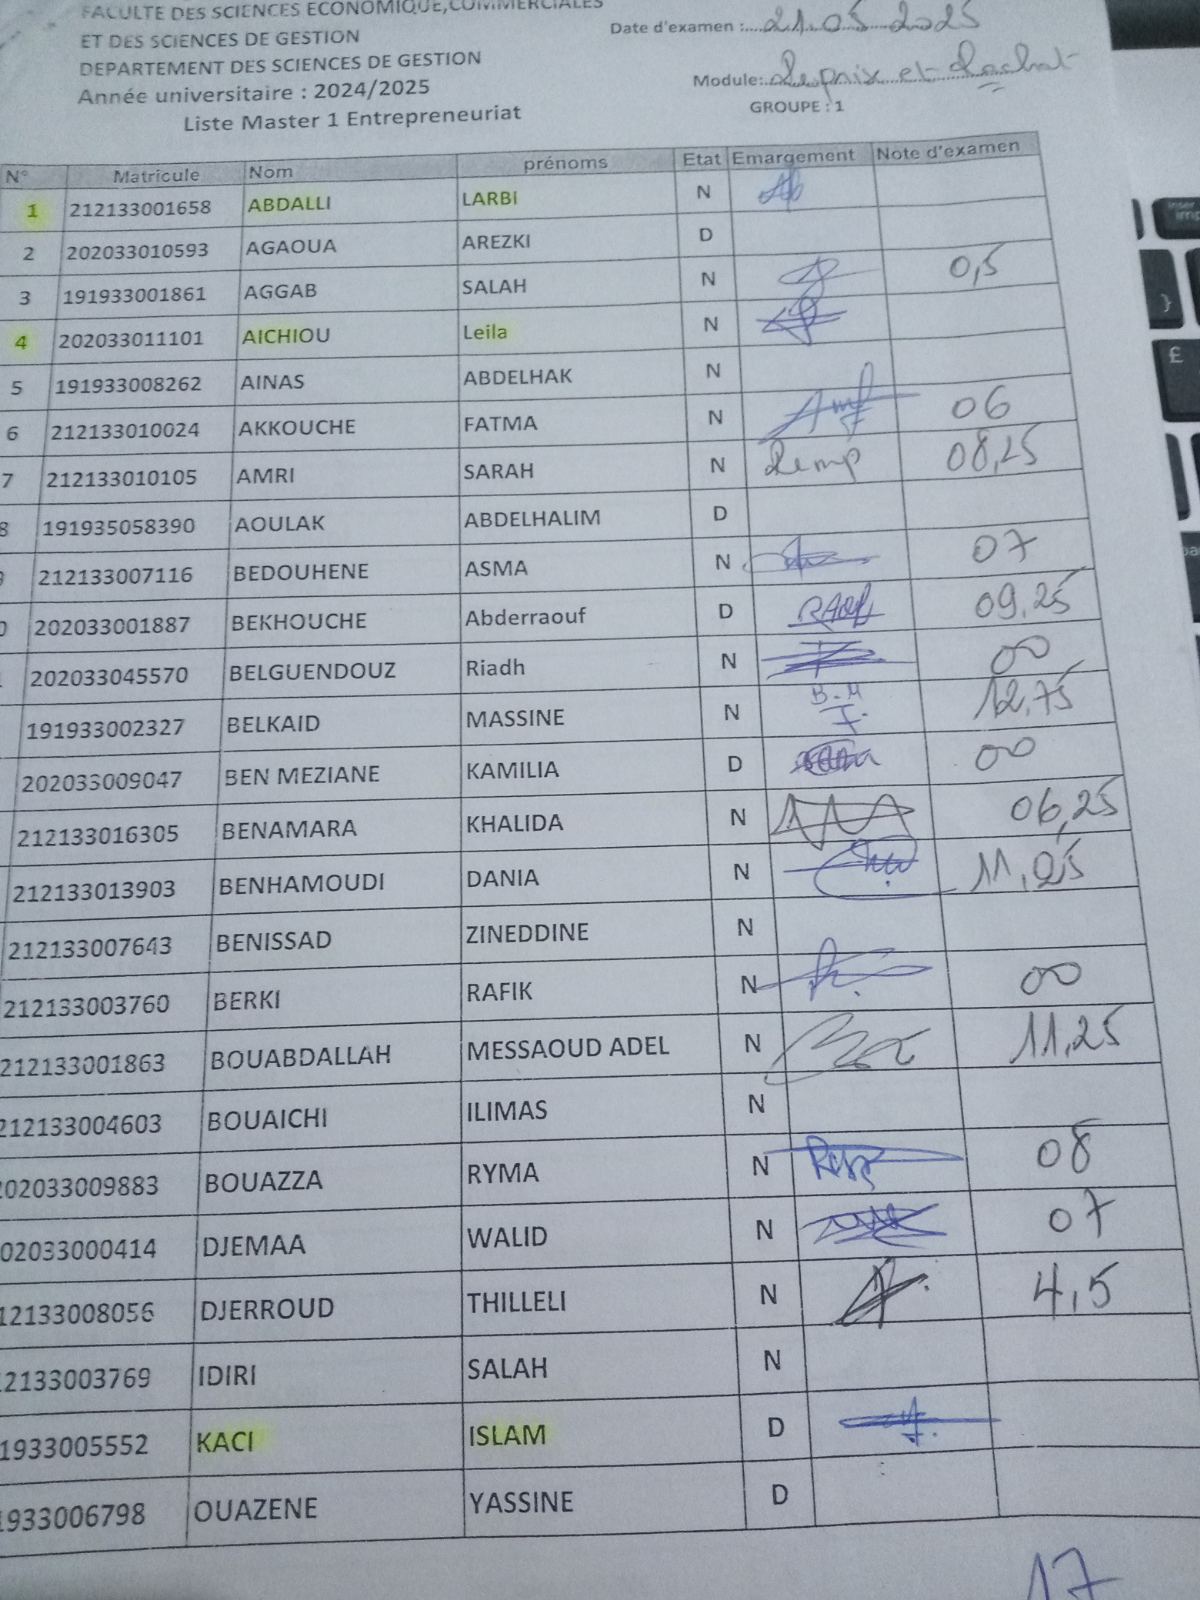 FACULTE DES SCIENCES ECONOMIQUE,COMMERCIALES
ET DES SCIENCES DE GESTION
DEPARTEMENT DES SCIENCES DE GESTION
Année universitaire : 2024/2025
Liste Master 1 Entrepreneuriat
Date d'examen :....21.05.2025
Module:..Reprise et Rachat
GROUPE : 1
N° Matricule Nom prénoms Etat Emargement Note d'examen
1 212133001658 ABDALLI LARBI N
2 202033010593 AGAOUA AREZKI D
3 191933001861 AGGAB SALAH N 0,5
4 202033011101 AICHIOU Leila N
5 191933008262 AINAS ABDELHAK N
6 212133010024 AKKOUCHE FATMA N 06
7 212133010105 AMRI SARAH N Remp 08,25
8 191935058390 AOULAK ABDELHALIM D
212133007116 BEDOUHENE ASMA N 07
0 202033001887 BEKHOUCHE Abderraouf D RAOUF 09,25
202033045570 BELGUENDOUZ Riadh N 00
191933002327 BELKAID MASSINE N B.M 12,75
202033009047 BEN MEZIANE KAMILIA D 00
212133016305 BENAMARA KHALIDA N 06,25
212133013903 BENHAMOUDI DANIA N 11,25
212133007643 BENISSAD ZINEDDINE N
212133003760 BERKI RAFIK N 00
212133001863 BOUABDALLAH MESSAOUD ADEL N 11,25
212133004603 BOUAICHI ILIMAS N
202033009883 BOUAZZA RYMA N 08
02033000414 DJEMAA WALID N 07
12133008056 DJERROUD THILLELI N 4,5
12133003769 IDIRI SALAH N
1933005552 KACI ISLAM D
1933006798 OUAZENE YASSINE D
17